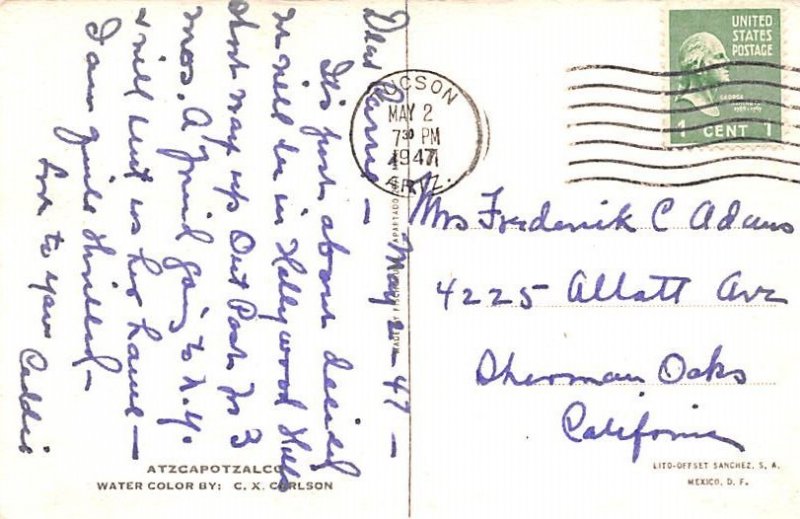 Dear Carrie — May 2 — 47 —
It's just about decided
we will be in Hollywood Hills
short way up Out Post for 3
mos. A friend going to N.Y.
& will rent us her home —
I am quite thrilled —
Love to you Caddie
ATZCAPOTZALCO
WATER COLOR BY: C. X. CARLSON
UNITED
STATES
POSTAGE
GEORGE
WASHINGTON
1789-1797
1 CENT 1
TUCSON
MAY 2
7 30 PM
1947
ARIZ.
Mrs Frederik C Adams
4225 Allott Ave
Sherman Oaks
California
LITO-OFFSET SANCHEZ, S. A.
MEXICO, D. F.